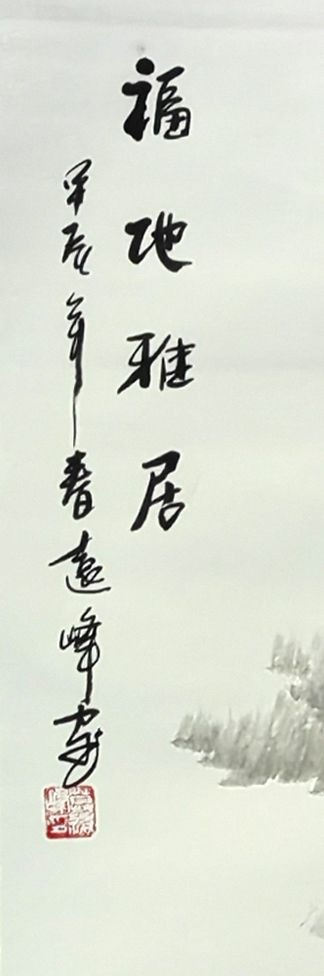 福地雅居
甲辰年春遠峰寫